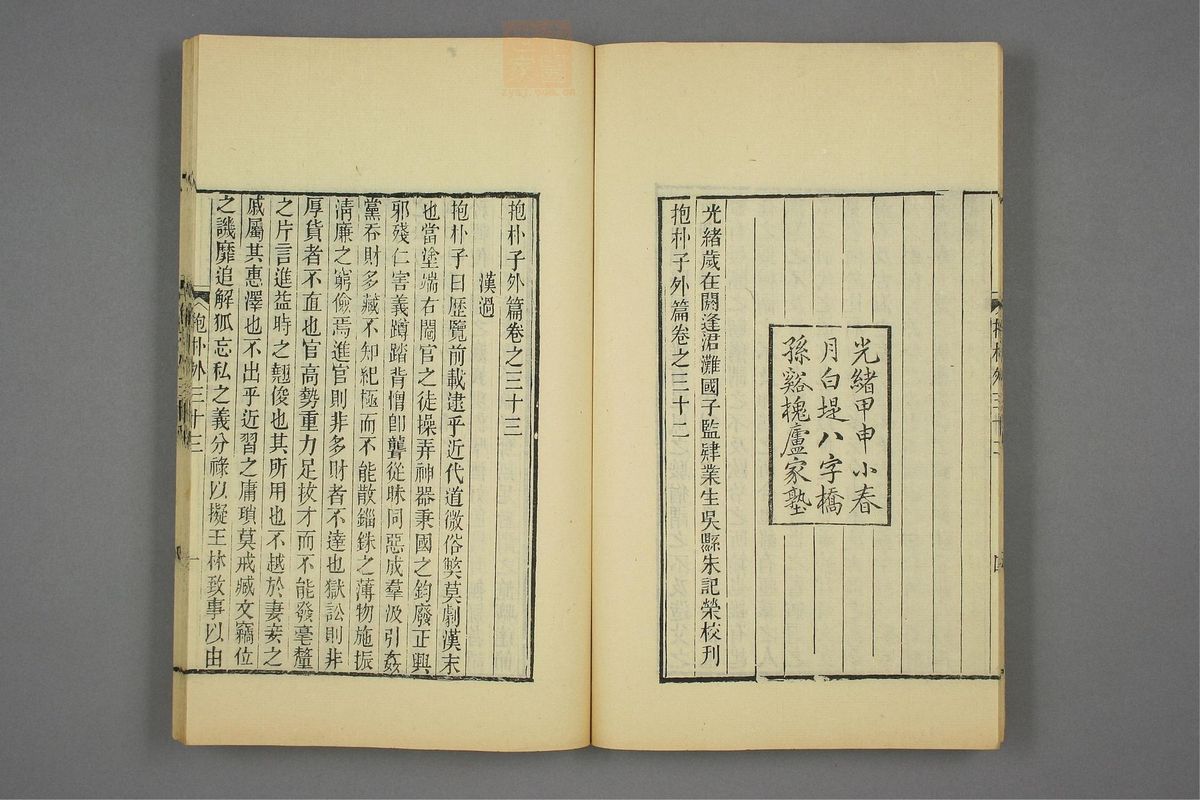 光緒甲申小春
月白堤八字橋
孫谿槐廬家塾
光緒歲在閼逢涒灘國子監肄業生吳縣朱記榮校刊
抱朴子外篇卷之三十二
抱朴子外篇卷之三十三
漢過
抱朴子曰歷覽前載逮乎近代道微俗獘莫劇漢末
也當塗端右閹官之徒操弄神器秉國之鈞廢正興
邪殘仁害義蹲踏背憎卽聾從昧同惡成羣汲引姦
黨吞財多藏不知紀極而不能散錙銖之薄物施振
清廉之窮儉焉進官則非多財者不達也獄訟則非
厚貨者不直也官高勢重力足拔才而不能發毫釐
之片言進益時之翹俊也其所用也不越於妻妾之
戚屬其惠澤也不出乎近習之庸瑣莫戒臧文竊位
之譏靡追解狐忘私之義分祿以擬王林致事以由
抱朴外三十三
一